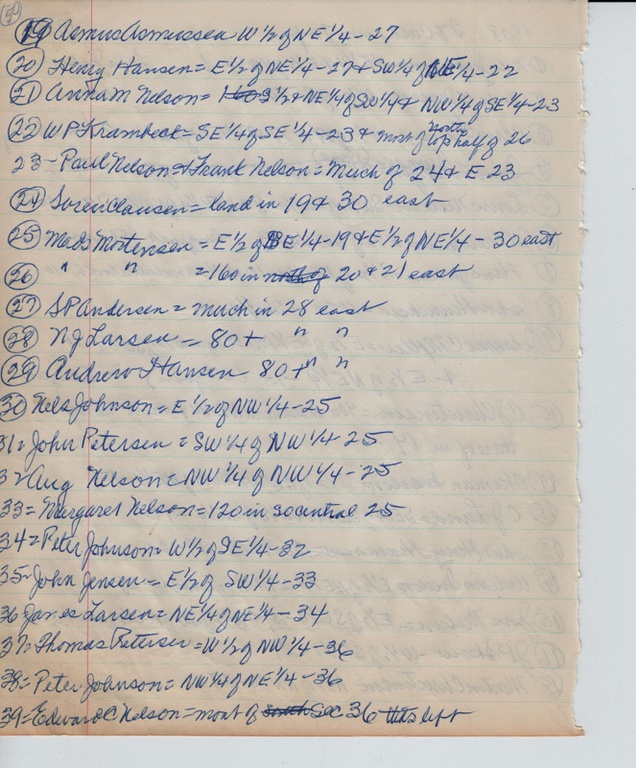 59
19 Asmus Asmussen W 1/2 of NE 1/4 - 27
20 Henry Hansen = E 1/2 of NE 1/4 - 27 & SW 1/4 of NE 1/4 - 22
21 Anna M Nelson = S 1/2 & NE 1/4 of SW 1/4 & NW 1/4 of SE 1/4 - 23
22 W P Krambeck = SE 1/4 of SE 1/4 - 23 & most of north top half of 26
23 - Paul Nelson & Frank Nelson = Much of 24 & E 23
24 Soren Clausen = land in 19 & 30 east
25 Mads Mortensen = E 1/2 of SE 1/4 - 19 & E 1/2 of NE 1/4 - 30 east
26 " " = 160 in north of 20 & 21 east
27 S P Andersen = much in 28 east
28 N J Larsen = 80 + " "
29 Andrew Hansen 80 + " "
30 Nels Johnson = E 1/2 of NW 1/4 - 25
31 = John Petersen = SW 1/4 of NW 1/4 25
32 Aug Nelson = NW 1/4 of NW 1/4 - 25
33 = Margaret Nelson = 120 in so central 25
34 = Peter Johnson = W 1/2 of SE 1/4 - 32
35 = John Jensen = E 1/2 of SW 1/4 - 33
36 James Larsen = NE 1/4 of NE 1/4 - 34
37 = Thomas Petersen = W 1/2 of NW 1/4 - 36
38 = Peter Johnson = NW 1/4 of NE 1/4 - 36
39 = Edward C Nelson = most of south Sec 36 left